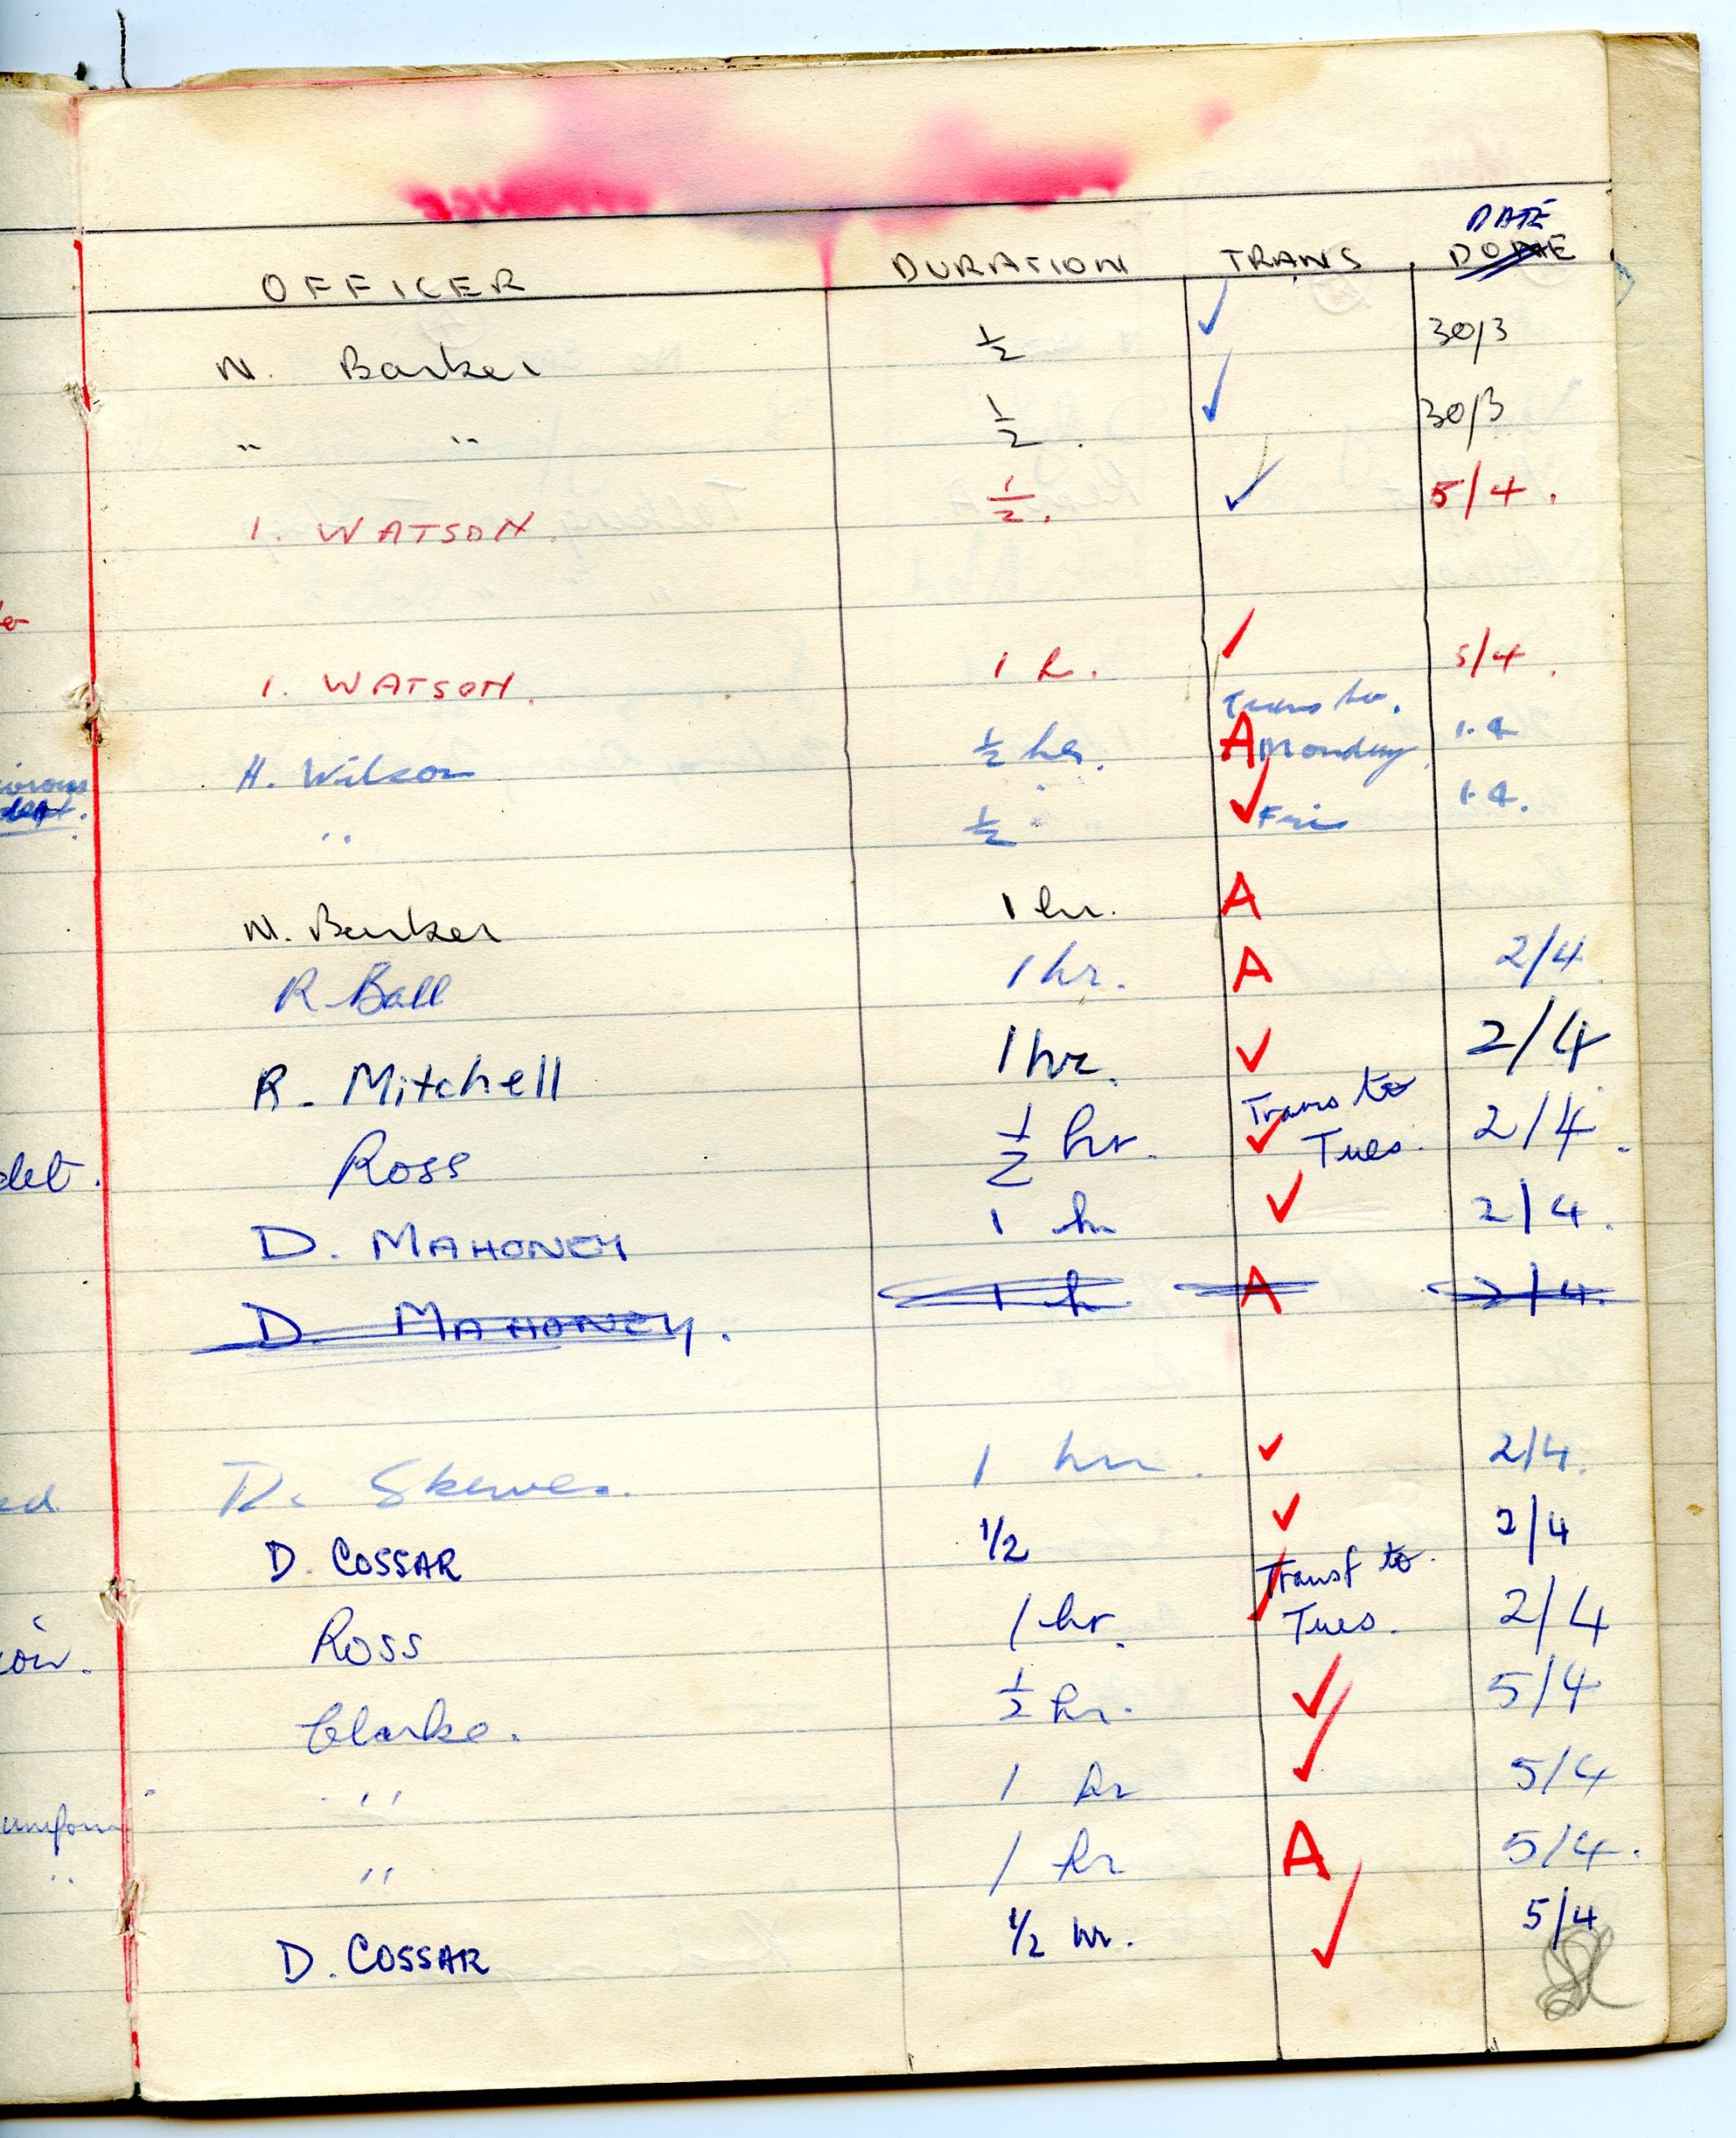 DATE
OFFICER DURATION TRANS DONE
N. Barker ½ ✓ 30/3
" " ½ . ✓ 30/3
I. WATSON. ½. ✓ 5/4.
I. WATSON. 1 h. ✓ 5/4.
Trans to.
H. Wilson ½ hr. A Monday 1.4
" ½ " ✓ Fri 1.4.
N. Barker 1 hr. A
R Ball 1 hr. A 2/4.
R. Mitchell 1 hr. ✓ 2/4
Trans to
Ross ½ hr. ✓ Tues. 2/4.
D. MAHONEY 1 h ✓ 2/4.
D. MAHONEY. 1 h A 2/4.
1 hr. ✓ 2/4.
D. COSSAR 1/2 ✓ 2/4
Transf to.
Ross 1 hr. ✓ Tues. 2/4
Clarke. ½ hr. ✓ 5/4
" 1 hr ✓ 5/4
" 1 hr A 5/4.
D. COSSAR 1/2 hr. ✓ 5/4
uniform